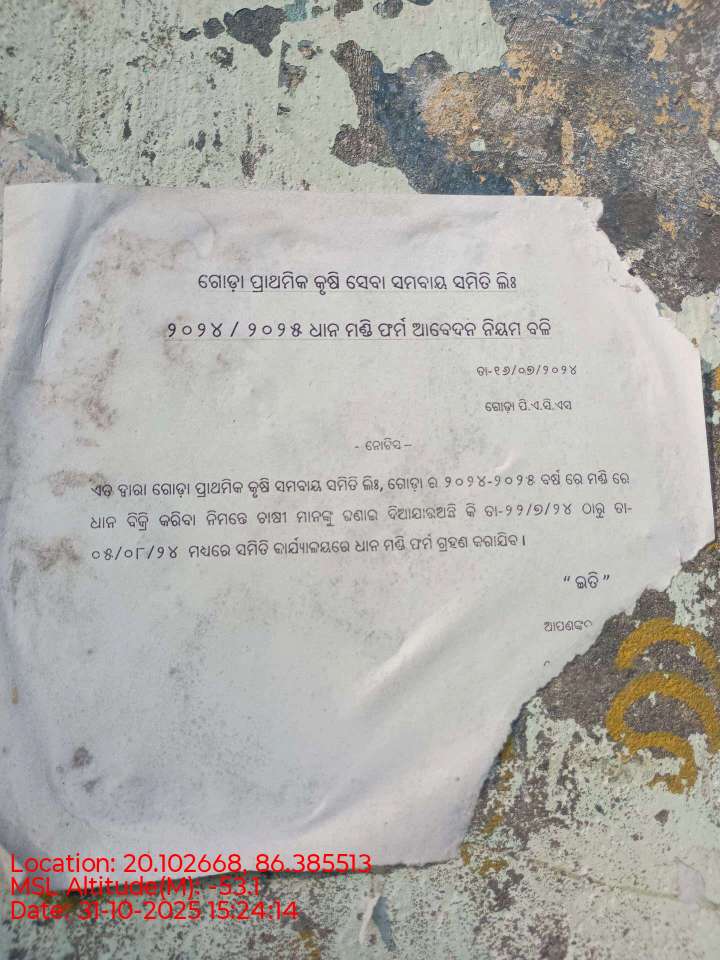 ଗୋଡ଼ା ପ୍ରାଥମିକ କୃଷି ସେବା ସମବାୟ ସମିତି ଲିଃ
୨୦୨୪ / ୨୦୨୫ ଧାନ ମଣ୍ଡି ଫର୍ମ ଆବେଦନ ନିୟମ ବଳି
ତା-୧୬/୦୭/୨୦୨୪
ଗୋଡ଼ା ପି.ଏ.ସି.ଏସ
- ନୋଟିସ –
ଏତ ଦ୍ୱାରା ଗୋଡ଼ା ପ୍ରାଥମିକ କୃଷି ସମବାୟ ସମିତି ଲିଃ, ଗୋଡ଼ା ର ୨୦୨୪-୨୦୨୫ ବର୍ଷ ରେ ମଣ୍ଡି ରେ
ଧାନ ବିକ୍ରି କରିବା ନିମନ୍ତେ ଚାଷୀ ମାନଙ୍କୁ ଜଣାଇ ଦିଆଯାଉଅଛି କି ତା-୨୨/୭/୨୪ ଠାରୁ ତା-
୦୫/୦୮/୨୪ ମଧ୍ୟରେ ସମିତି କାର୍ଯ୍ୟାଳୟରେ ଧାନ ମଣ୍ଡି ଫର୍ମ ଗ୍ରହଣ କରାଯିବ।
“ ଇତି ”
Location: 20.102668, 86.385513
MSL Altitude(M): -53.1
Date: 31-10-2025 15:24:14